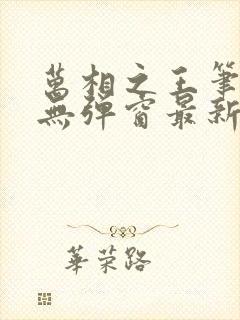 萬相之王筆
無彈窗最新
華荣路